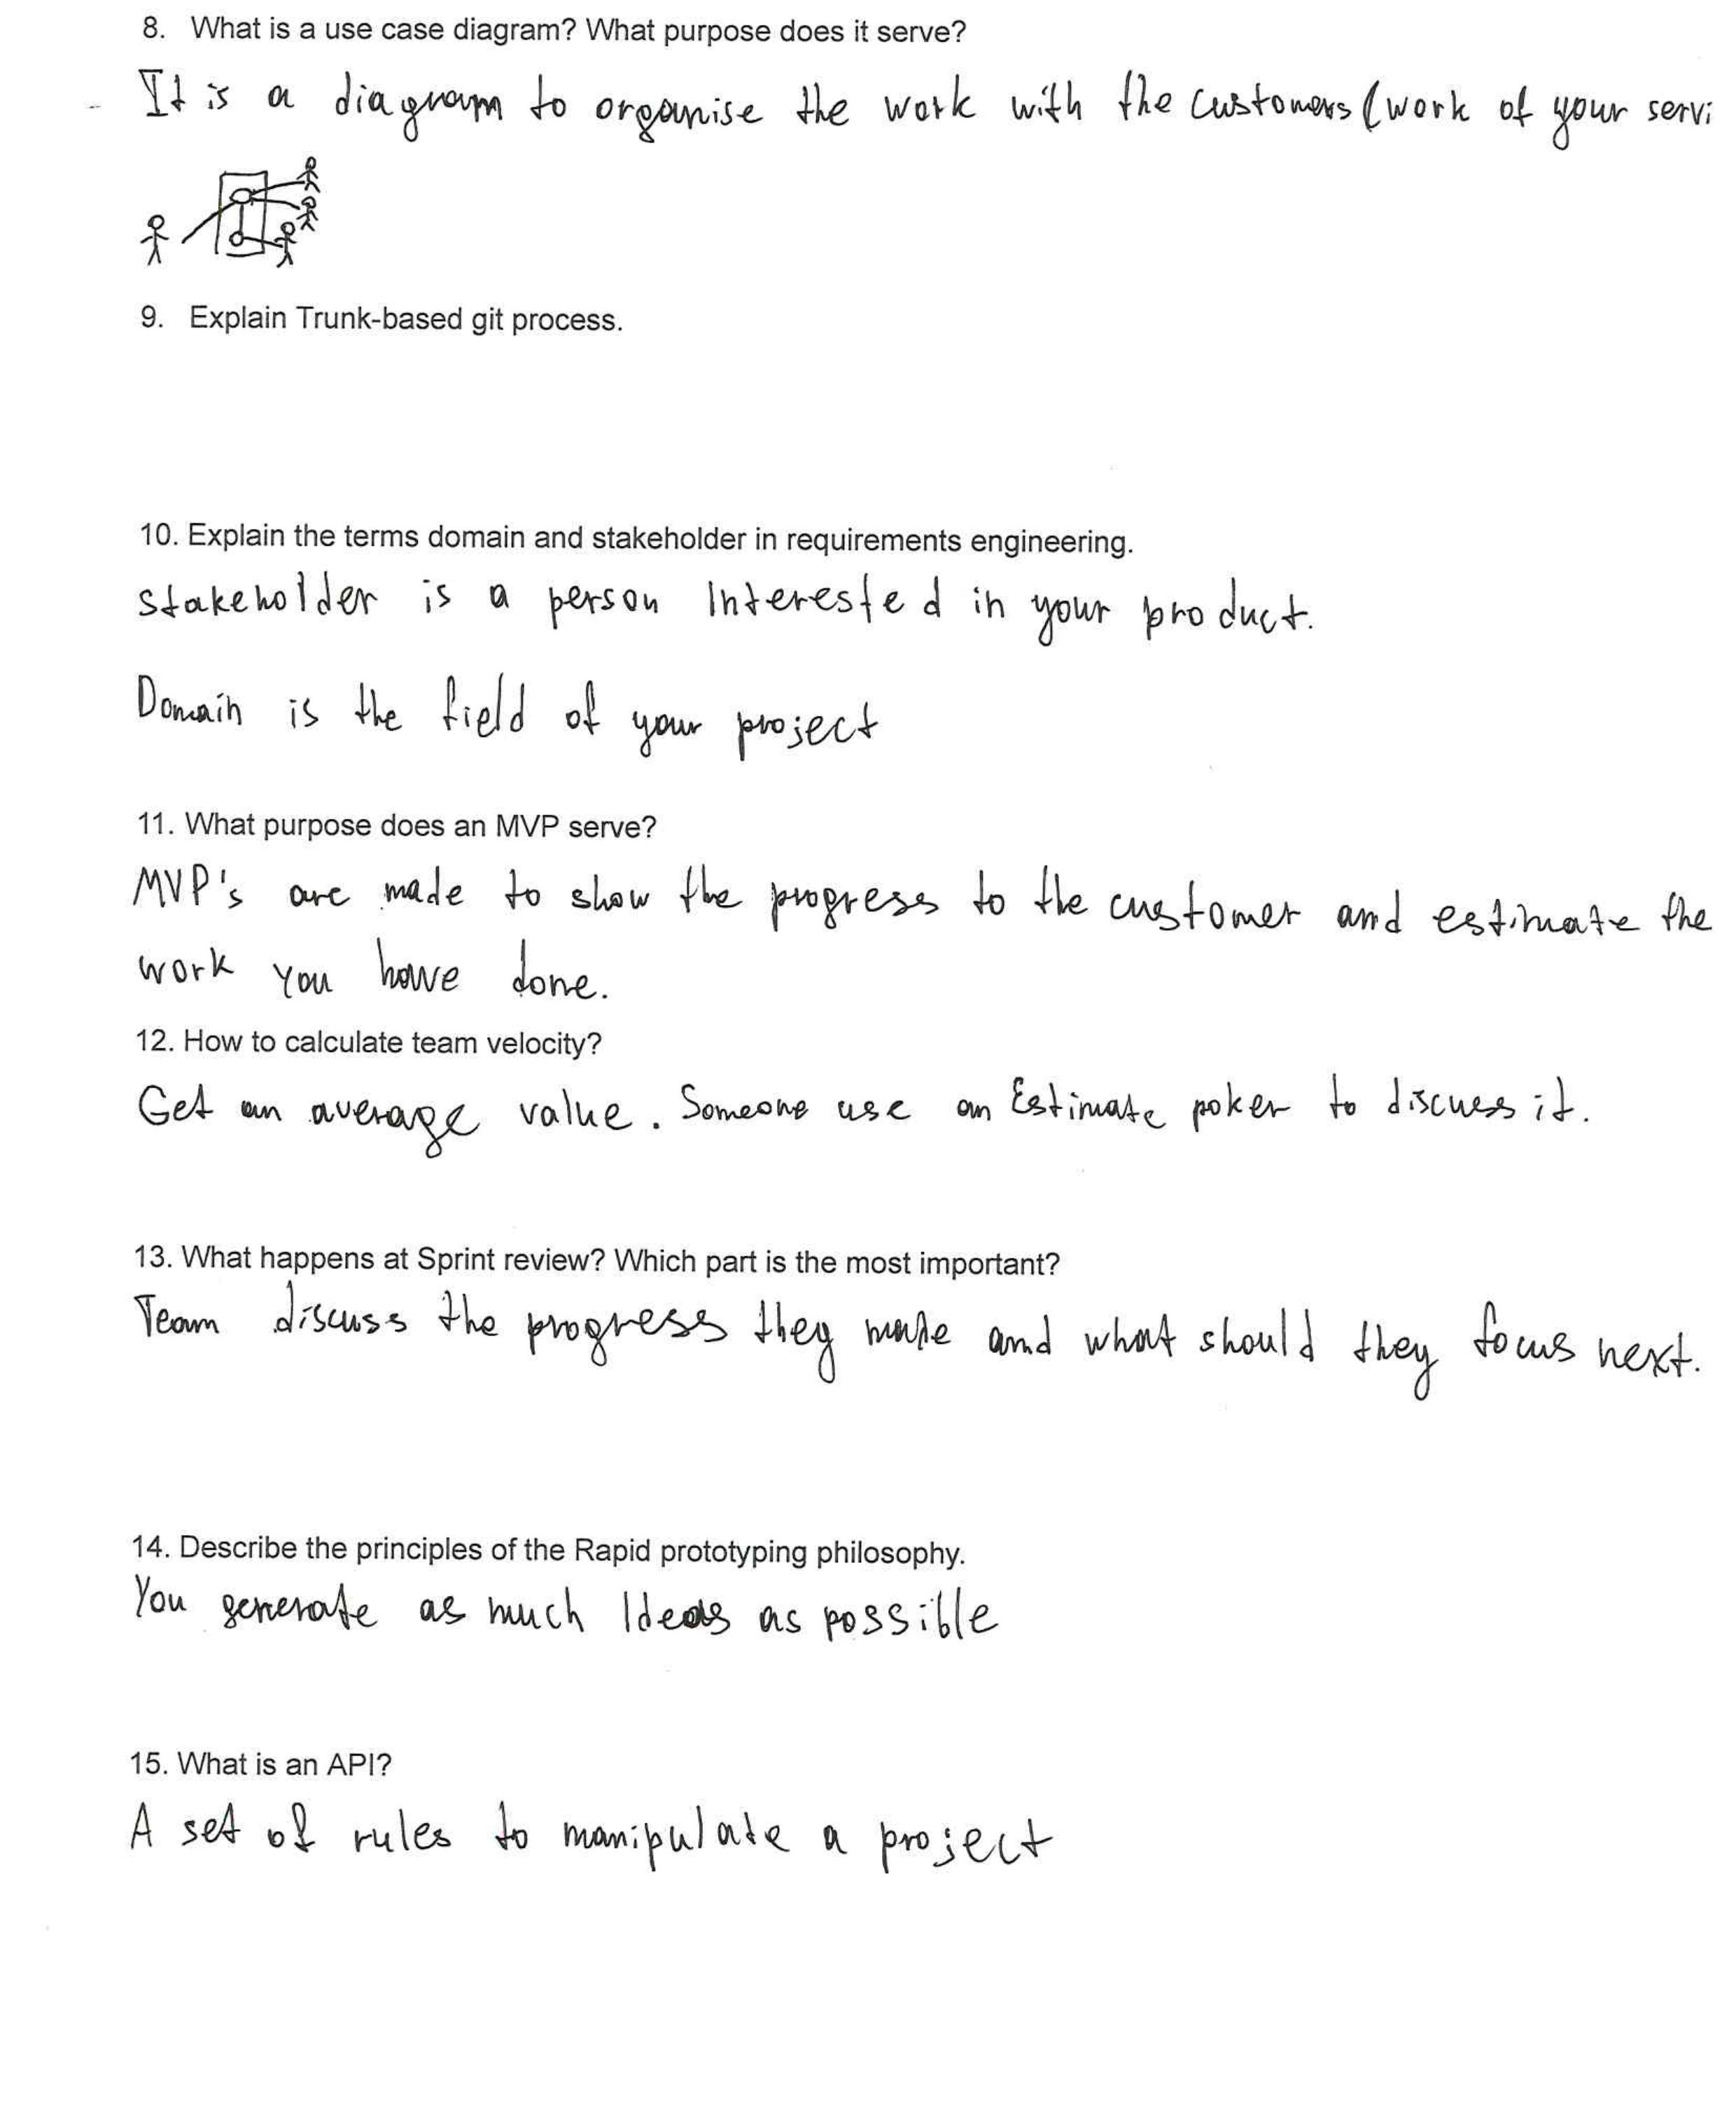 8. What is a use case diagram? What purpose does it serve?
It is a diagram to organise the work with the customers (work of your servi
9. Explain Trunk-based git process.
10. Explain the terms domain and stakeholder in requirements engineering.
stakeholder is a person Interested in your product.
Domain is the field of your project
11. What purpose does an MVP serve?
MVP's are made to show the progress to the customer and estimate the
work you have done.
12. How to calculate team velocity?
Get an average value. Someone use an Estimate poker to discuss it.
13. What happens at Sprint review? Which part is the most important?
Team discuss the progress they made and what should they focus next.
14. Describe the principles of the Rapid prototyping philosophy.
You generate as much Ideas as possible
15. What is an API?
A set of rules to manipulate a project